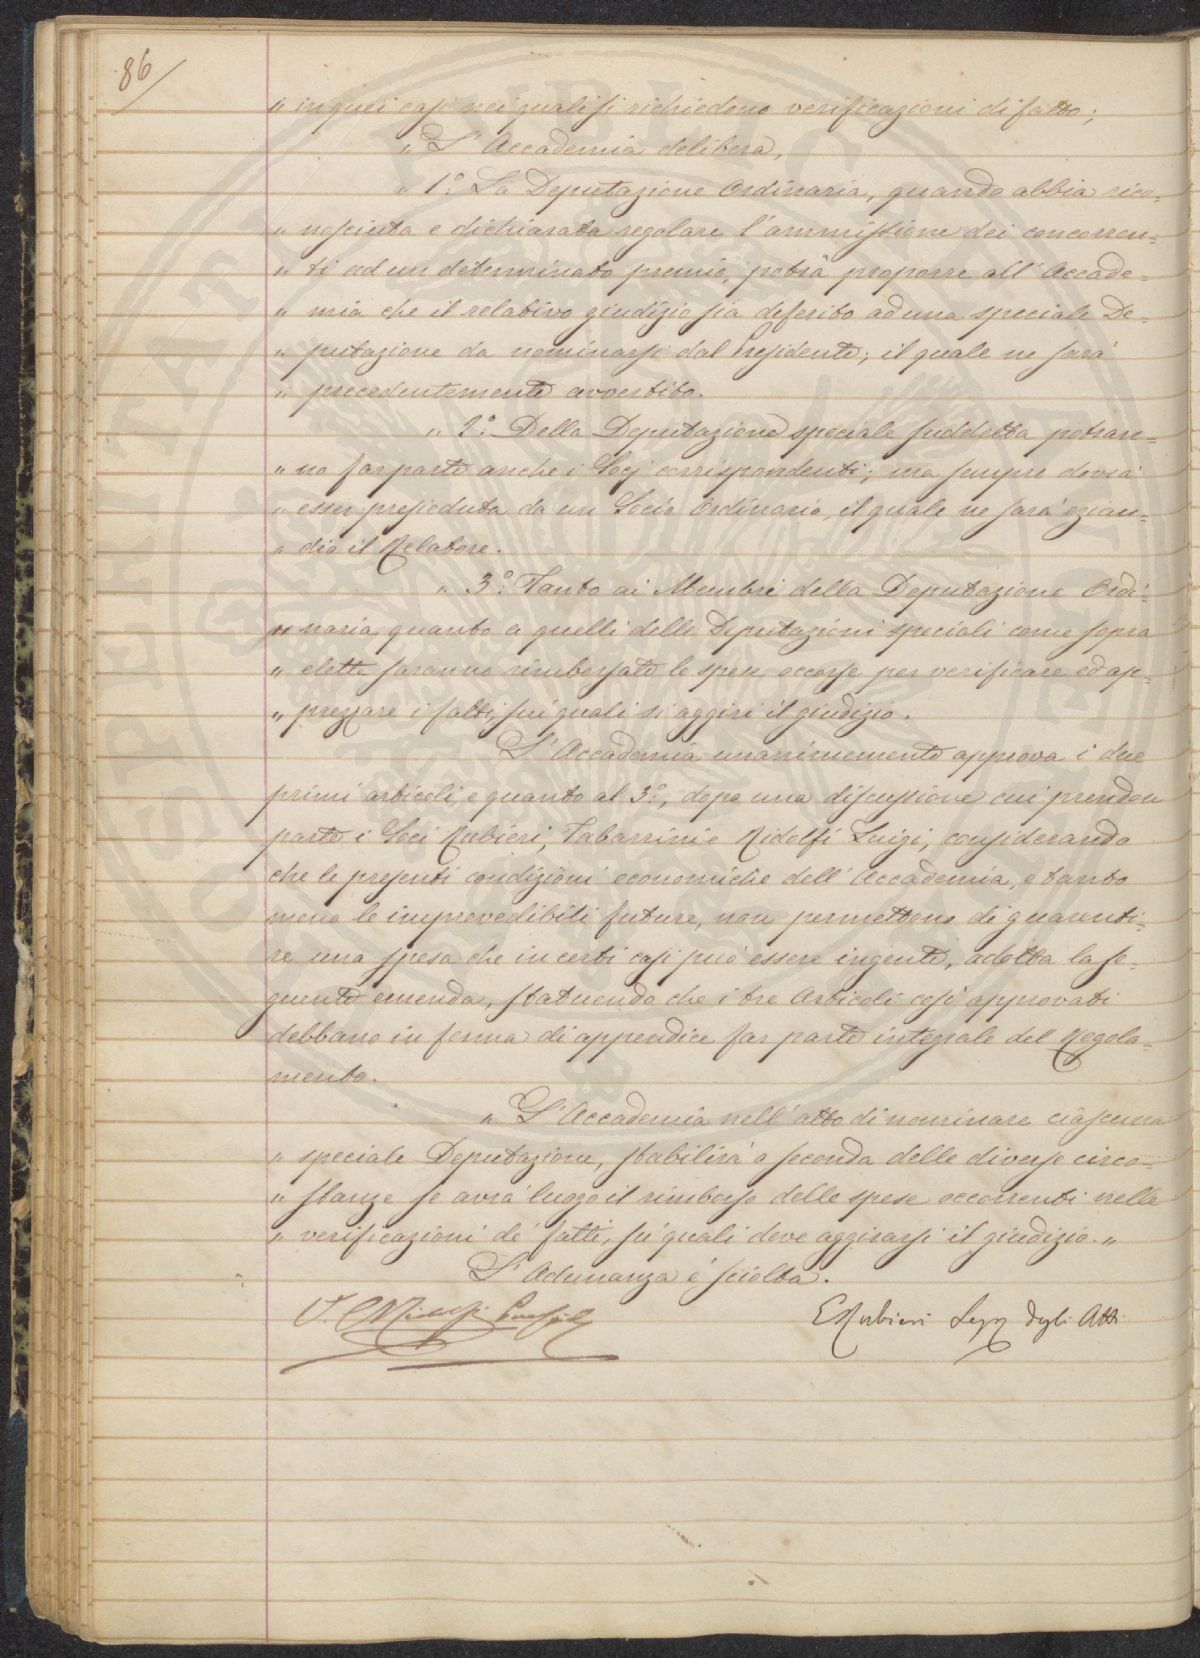 86
„ in quei casi nei quali si richiedono verificazioni di fatto;
„ L'Accademia delibera,
„ 1.° La Deputazione Ordinaria, quando abbia rico-
„ nosciuta e dichiarata regolare l'ammissione dei concorren-
„ ti ad un determinato premio, potrà proporre all'Accade-
„ mia che il relativo giudizio sia deferito ad una speciale De-
„ putazione da nominarsi dal Presidente; il quale ne sarà
„ precedentemente avvertito.
„ 2.° Della Deputazione speciale suddetta potran-
„ no far parte anche i Socj corrispondenti; ma sempre dovrà
„ esser presieduta da un Socio Ordinario, il quale ne sarà ezian-
„ dio il Relatore.
„ 3.° Tanto ai Membri della Deputazione Ordi-
„ naria, quanto a quelli delle Deputazioni speciali come sopra
„ elette saranno rimborsate le spese occorse per verificare ed ap-
„ prezzare i fatti, sui quali si aggiri il giudizio.
L'Accademia unanimemente approva i due
primi articoli, e quanto al 3.°, dopo una discussione cui prendon
parte i Soci Rubieri, Tabarrini e Ridolfi Luigi, considerando
che le presenti condizioni economiche dell'Accademia, e tanto
meno le imprevedibili future, non permettono di guarenti-
re una spesa che in certi casi può essere ingente, adotta la se-
guente emenda, statuendo che i tre Articoli così approvati
debbano in forma di appendice far parte integrale del Regola-
mento.
„ L'Accademia nell'atto di nominare ciascuna
„ speciale Deputazione, stabilirà a seconda delle diverse circo-
„ stanze se avrà luogo il rimborso delle spese occorrenti nelle
„ verificazioni de' fatti, su' quali deve aggirarsi il giudizio. „
L'Adunanza è sciolta.
E. Rubieri Segr. degli Atti